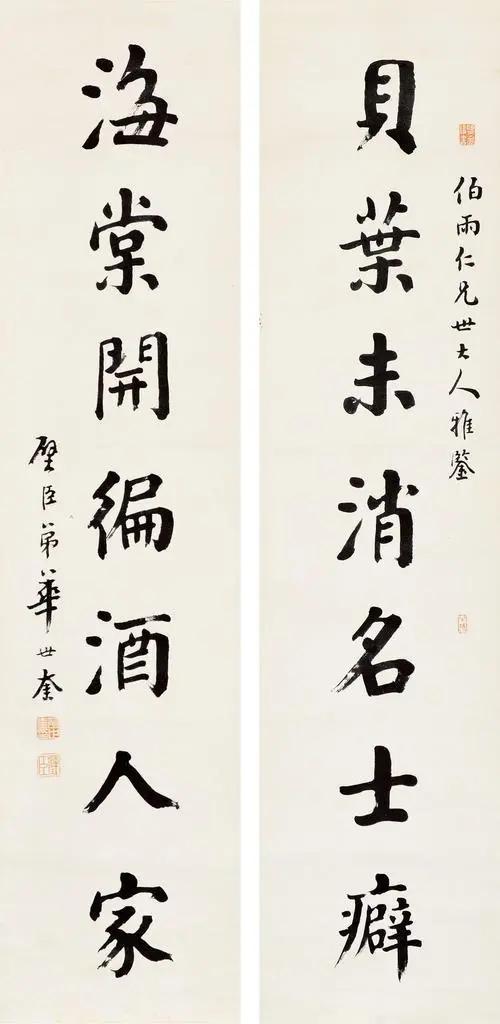 伯雨仁兄世大人雅鑒
貝葉未消名士癖
海棠開徧酒人家
璧臣弟華世奎